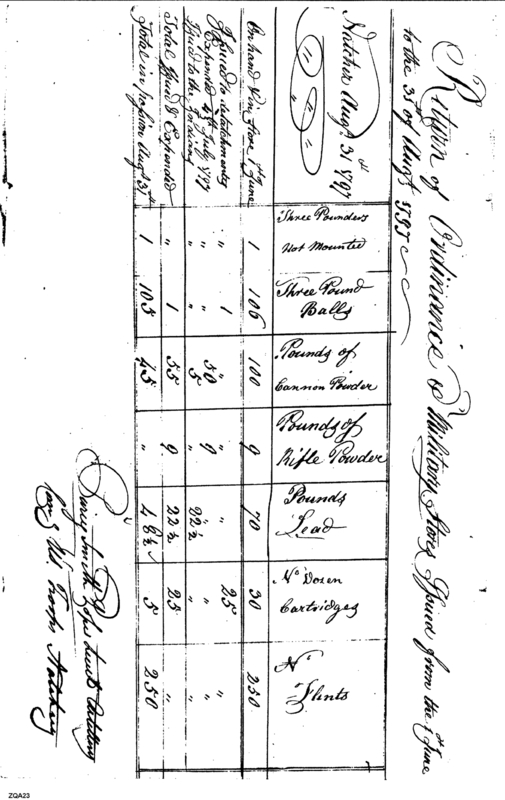 Return of Ordinance & Military Stores Issued from the 1st June
to the 31st of Augt 1797
Natchez Augt 31st 1797
Three Pounders Not Mounted
Three Pound Balls
Pounds of Cannon Powder
Pounds of Rifle Powder
Pounds Lead
No Dozen Cartridges
No Flints
On hand & in store 1st June 1 106 100 9 70 30 250
Issued to detatchments " " " " 25 "
Expended 4th July 1797 " 1 50 " " "
Issued to the Indians " " 5 9 22½ " "
Total Issued & Expended " 1 55 9 22½ 25 "
Total in possession Augt 31st 1 105 45 " 48½ 5 250
Piercy Smith Pope Lieut
Comg U.S. Troops Natchez
ZQA23